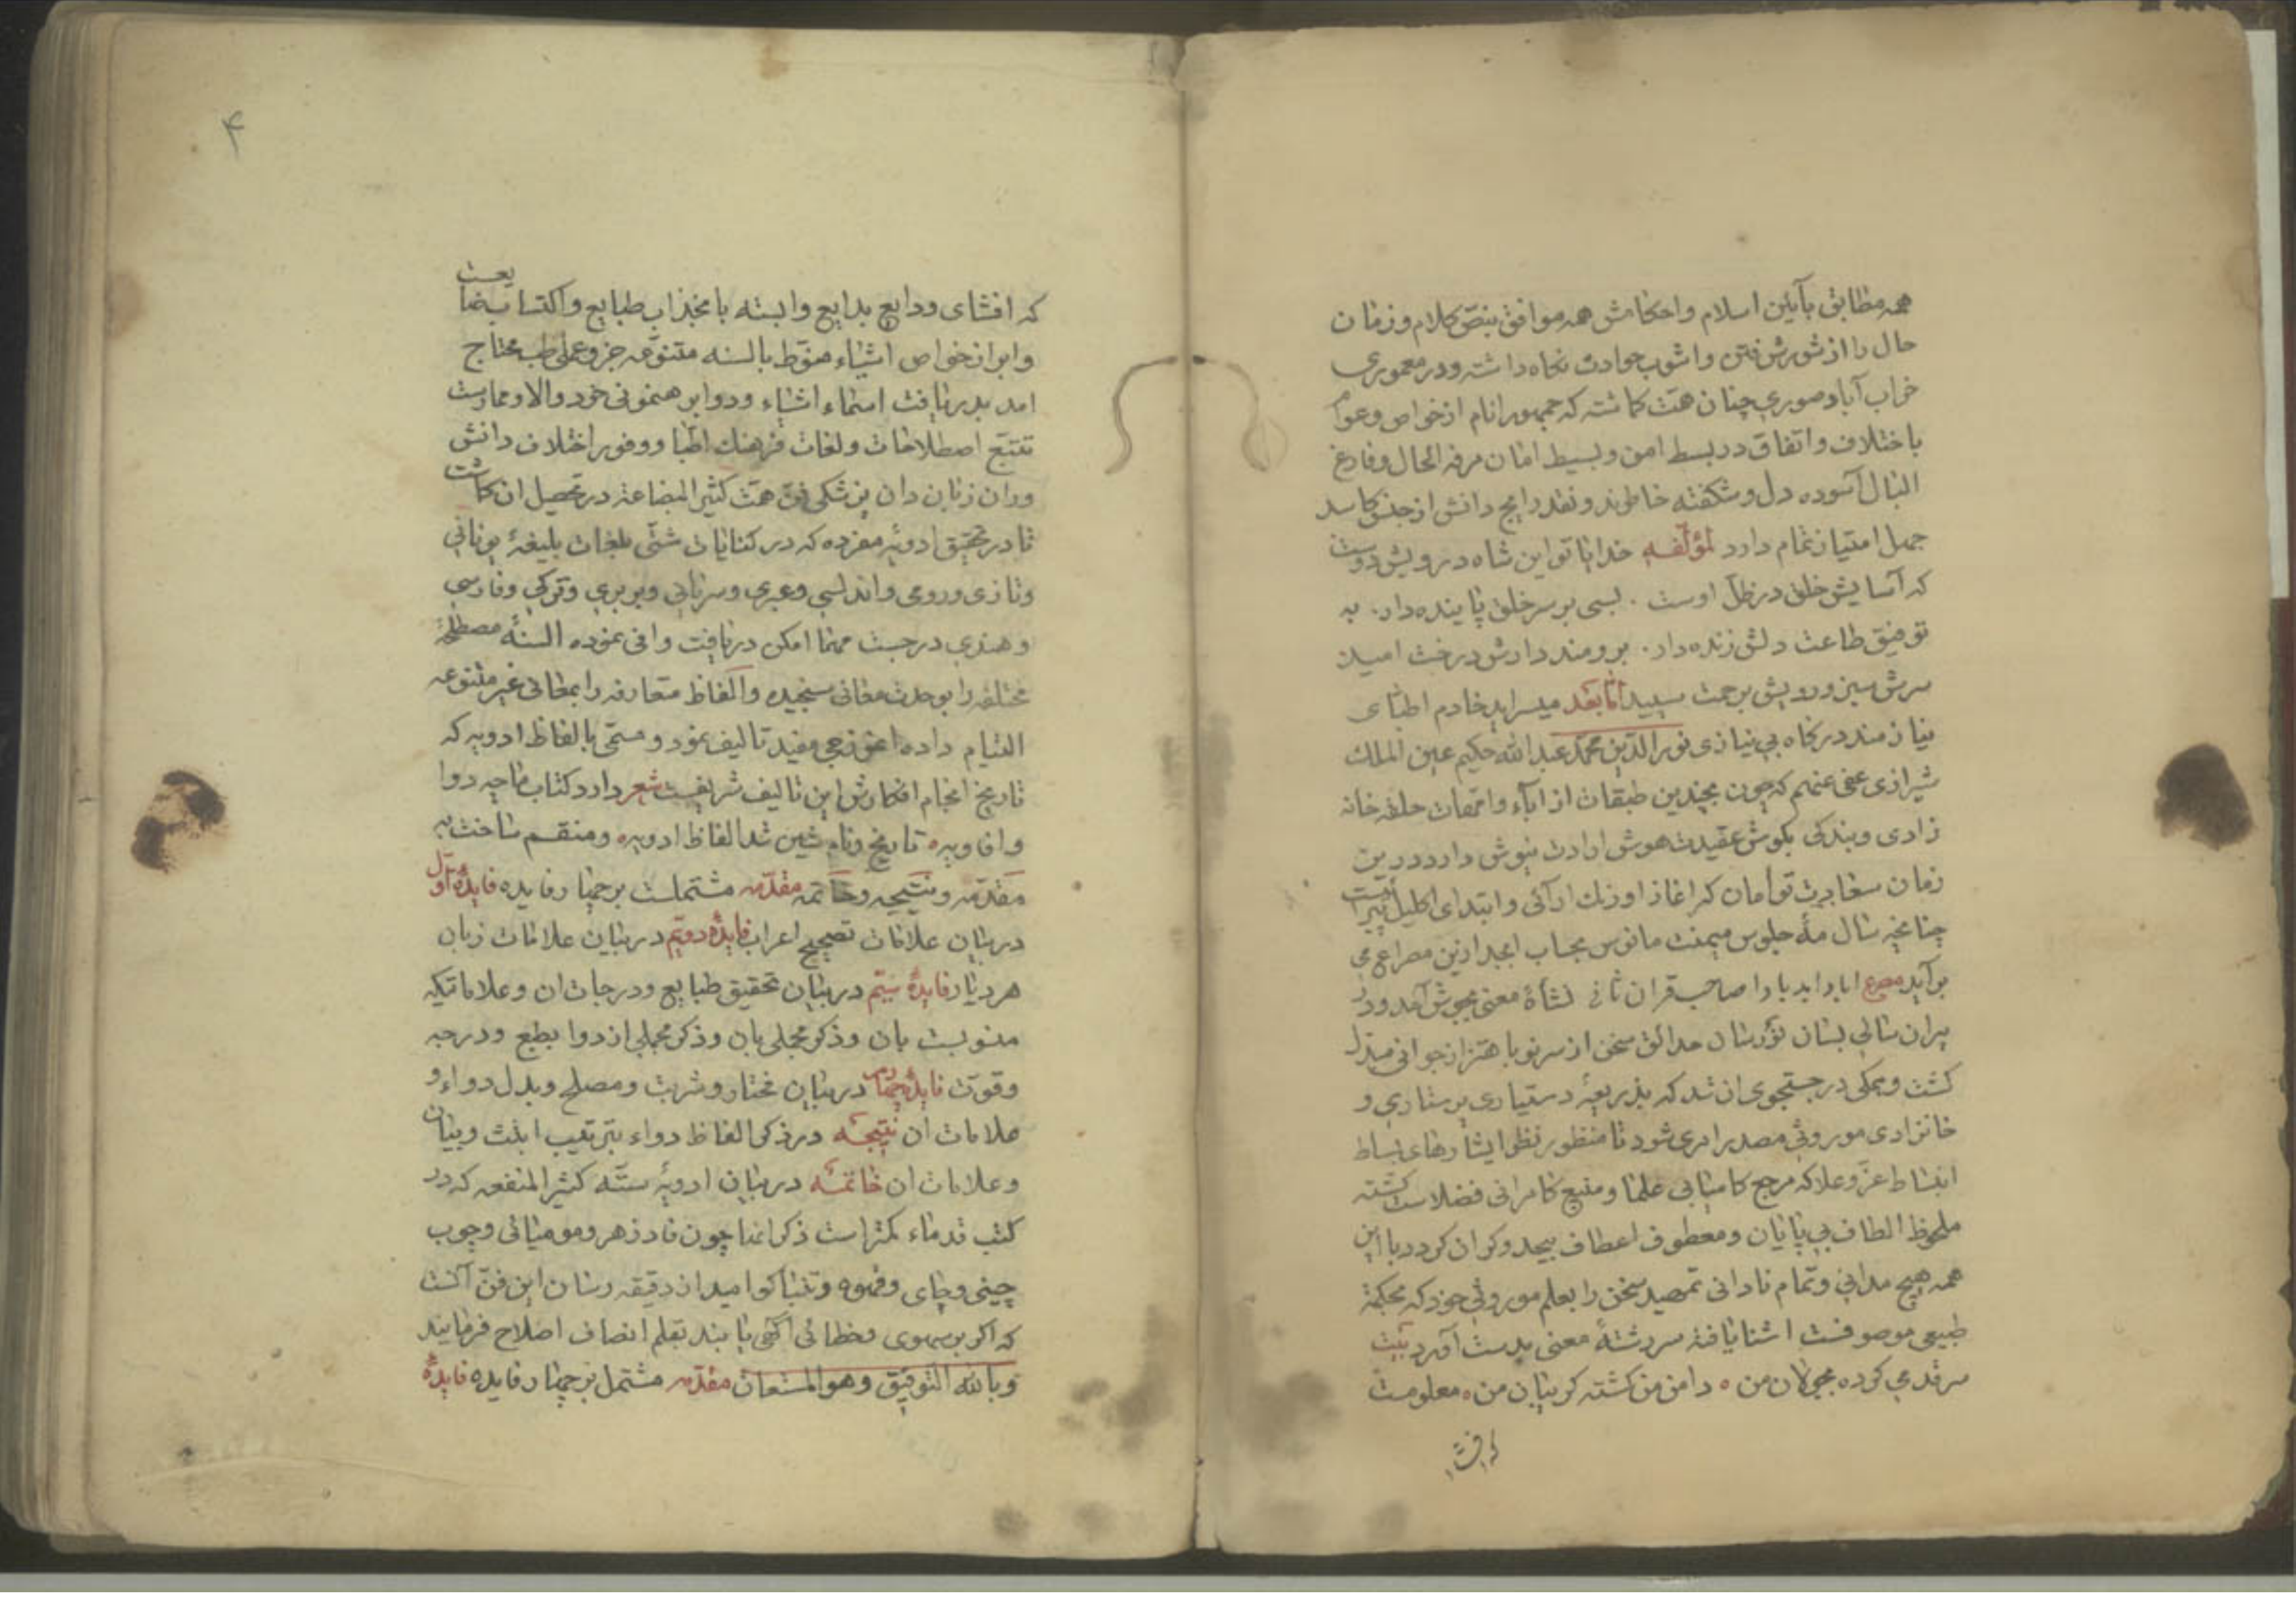 همه مطابق بآیین اسلام و احکامش همه موافق بنص کلام و زمان
حال را از شورش فتن و اشوب حوادث نکاه داشته و در معموری
خراب آباد صوری چنان همت کماشته که جمهور انام از خواص و عوام
باختلاف و اتفاق در بسط امن و بسیط امان مرفه الحال و فارغ
البال آسوده دل و شکفته خاطرند و نقد رایج دانش از جنس کاسد
جهل امتیاز تمام دارد لمؤلفه خدایا تو این شاه درویش دوست
که آسایش خلق در ظل اوست . بسی بر سر خلق پاینده دار . به
توفیق طاعت دلش زنده دار . برومند دارش درخت امید
سرش سبز و رویش برحمت سپید اما بعد میسراید خادم اطبای
نیازمند درکاه بی نیازی نور الدین محمد عبد الله حکیم عین الملک
شیرازی عفی عنهم که چون بچندین طبقات از اباء و امهات حلقه خانه
زادی و بندکی بکوش عقیدت هوش ارادت نیوش دارد درین
زمان سعادت توأمان که اغاز اورنک ارائی و ابتدای اکلیل پیراییست
چنانچه سال مه جلوس میمنت مانوس بحساب ابجد ازین مصراع می
برآید مصرع اباد ابد بادا صاحب قران ثانی نشأۀ معنی بجوش آمد و در
پیران سالی بسان نورسان حدائق سخن از سر نو باهتزاز جوانی مبدل
کشت و همکی در جستجوی ان شد که بذریعۀ دستیاری پرستاری و
خانزادی موروثی مصدر امری شود تا منظور نظر ایثارهای بساط
انبساط عز و علا که مرجع کامیابی علما و منبع کامرانی فضلاست کشته
ملحوظ الطاف بی پایان و معطوف اعطاف بیحد و کران کردد با این
همه هیچ مدانی و تمام نادانی تمهید سخن را بعلم موروثی خود که بحکمة
طبیعی موصوفست اشنا یافته سررشتۀ معنی بدست آورد بیت
سر قدمی کرده بجولان من ه دامن من کشته کریبان من ه معلومست
که افشا
۴
که افشای ودایع بدایع وابسته بانجذاب طبایع و اکتساب بضایعت
و ابراز خواص اشیاء منوط بالسنه متنوعه جزو عملی طب محتاج
امد بدریافت اسماء اشیاء و دوا برهنمونی خرد والا و ممارست
تتبع اصطلاحات و لغات فرهنک اطبا و وفور اختلاف دانش
وران زبان دان پزشکی فن همت کثیر البضاعة در تحصیل ان کماشت
تا در تحقیق ادویۀ مفرده که در کتابات شتی بلغات بلیغۀ یونانی
و تازی و رومی و اندلسی و عبری و سریانی و بربری و ترکی و فارسی
و هندی درجست مهما امکن دریافت وافی نموده السنۀ مصطلحۀ
مختلفه را بوحدت معانی سنجیده و الفاظ متعارفه را بمعانی غیر متنوعه
التیام داده انموذجی مفید تالیف نمود و مسمی بالفاظ ادویه که
تاریخ انجام افکارش این تالیف شریفست شعر دارد کتاب ما چه دوا
و افاویه ه تاریخ و نام شین شد الفاظ ادویه ه و منقسم ساخت به
مقدمه و نتیجه و خاتمه مقدمه مشتملست بر چهار فایده فایدۀ اول
در بیان علامات تصحیح اعراب فایدۀ دویم در بیان علامات زبان
هر دیار فایدۀ سیم در بیان تحقیق طبایع و درجات ان و علاماتیکه
منسوبست بان و ذکر مجملی بان و ذکر مجملی از دوا بطبع و درجه
و قوت فایدۀ چهارم در بیان مختار و شربت و مصلح و بدل دواء و
علامات ان نتیجه در ذکر الفاظ دواء بترتیب ابتث و بیان
و علامات ان خاتمه در بیان ادویۀ سته کثیر المنفعه که در
کتب قدماء کمتر است ذکر انها چون فادزهر و مومیائی و چوب
چینی و چای و قهوه و تنباکو امید از دقیقه رسان این فن آنست
که اکر بر سهوی و خطائی اکهی یابند بقلم انصاف اصلاح فرمایند
و بالله التوفیق و هو المستعان مقدمه مشتمل بر چهار فایده فایدۀ